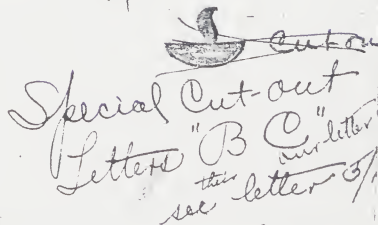 Cut-ou
Special Cut-out
Letters "B C"
their our letter
see letter 3/